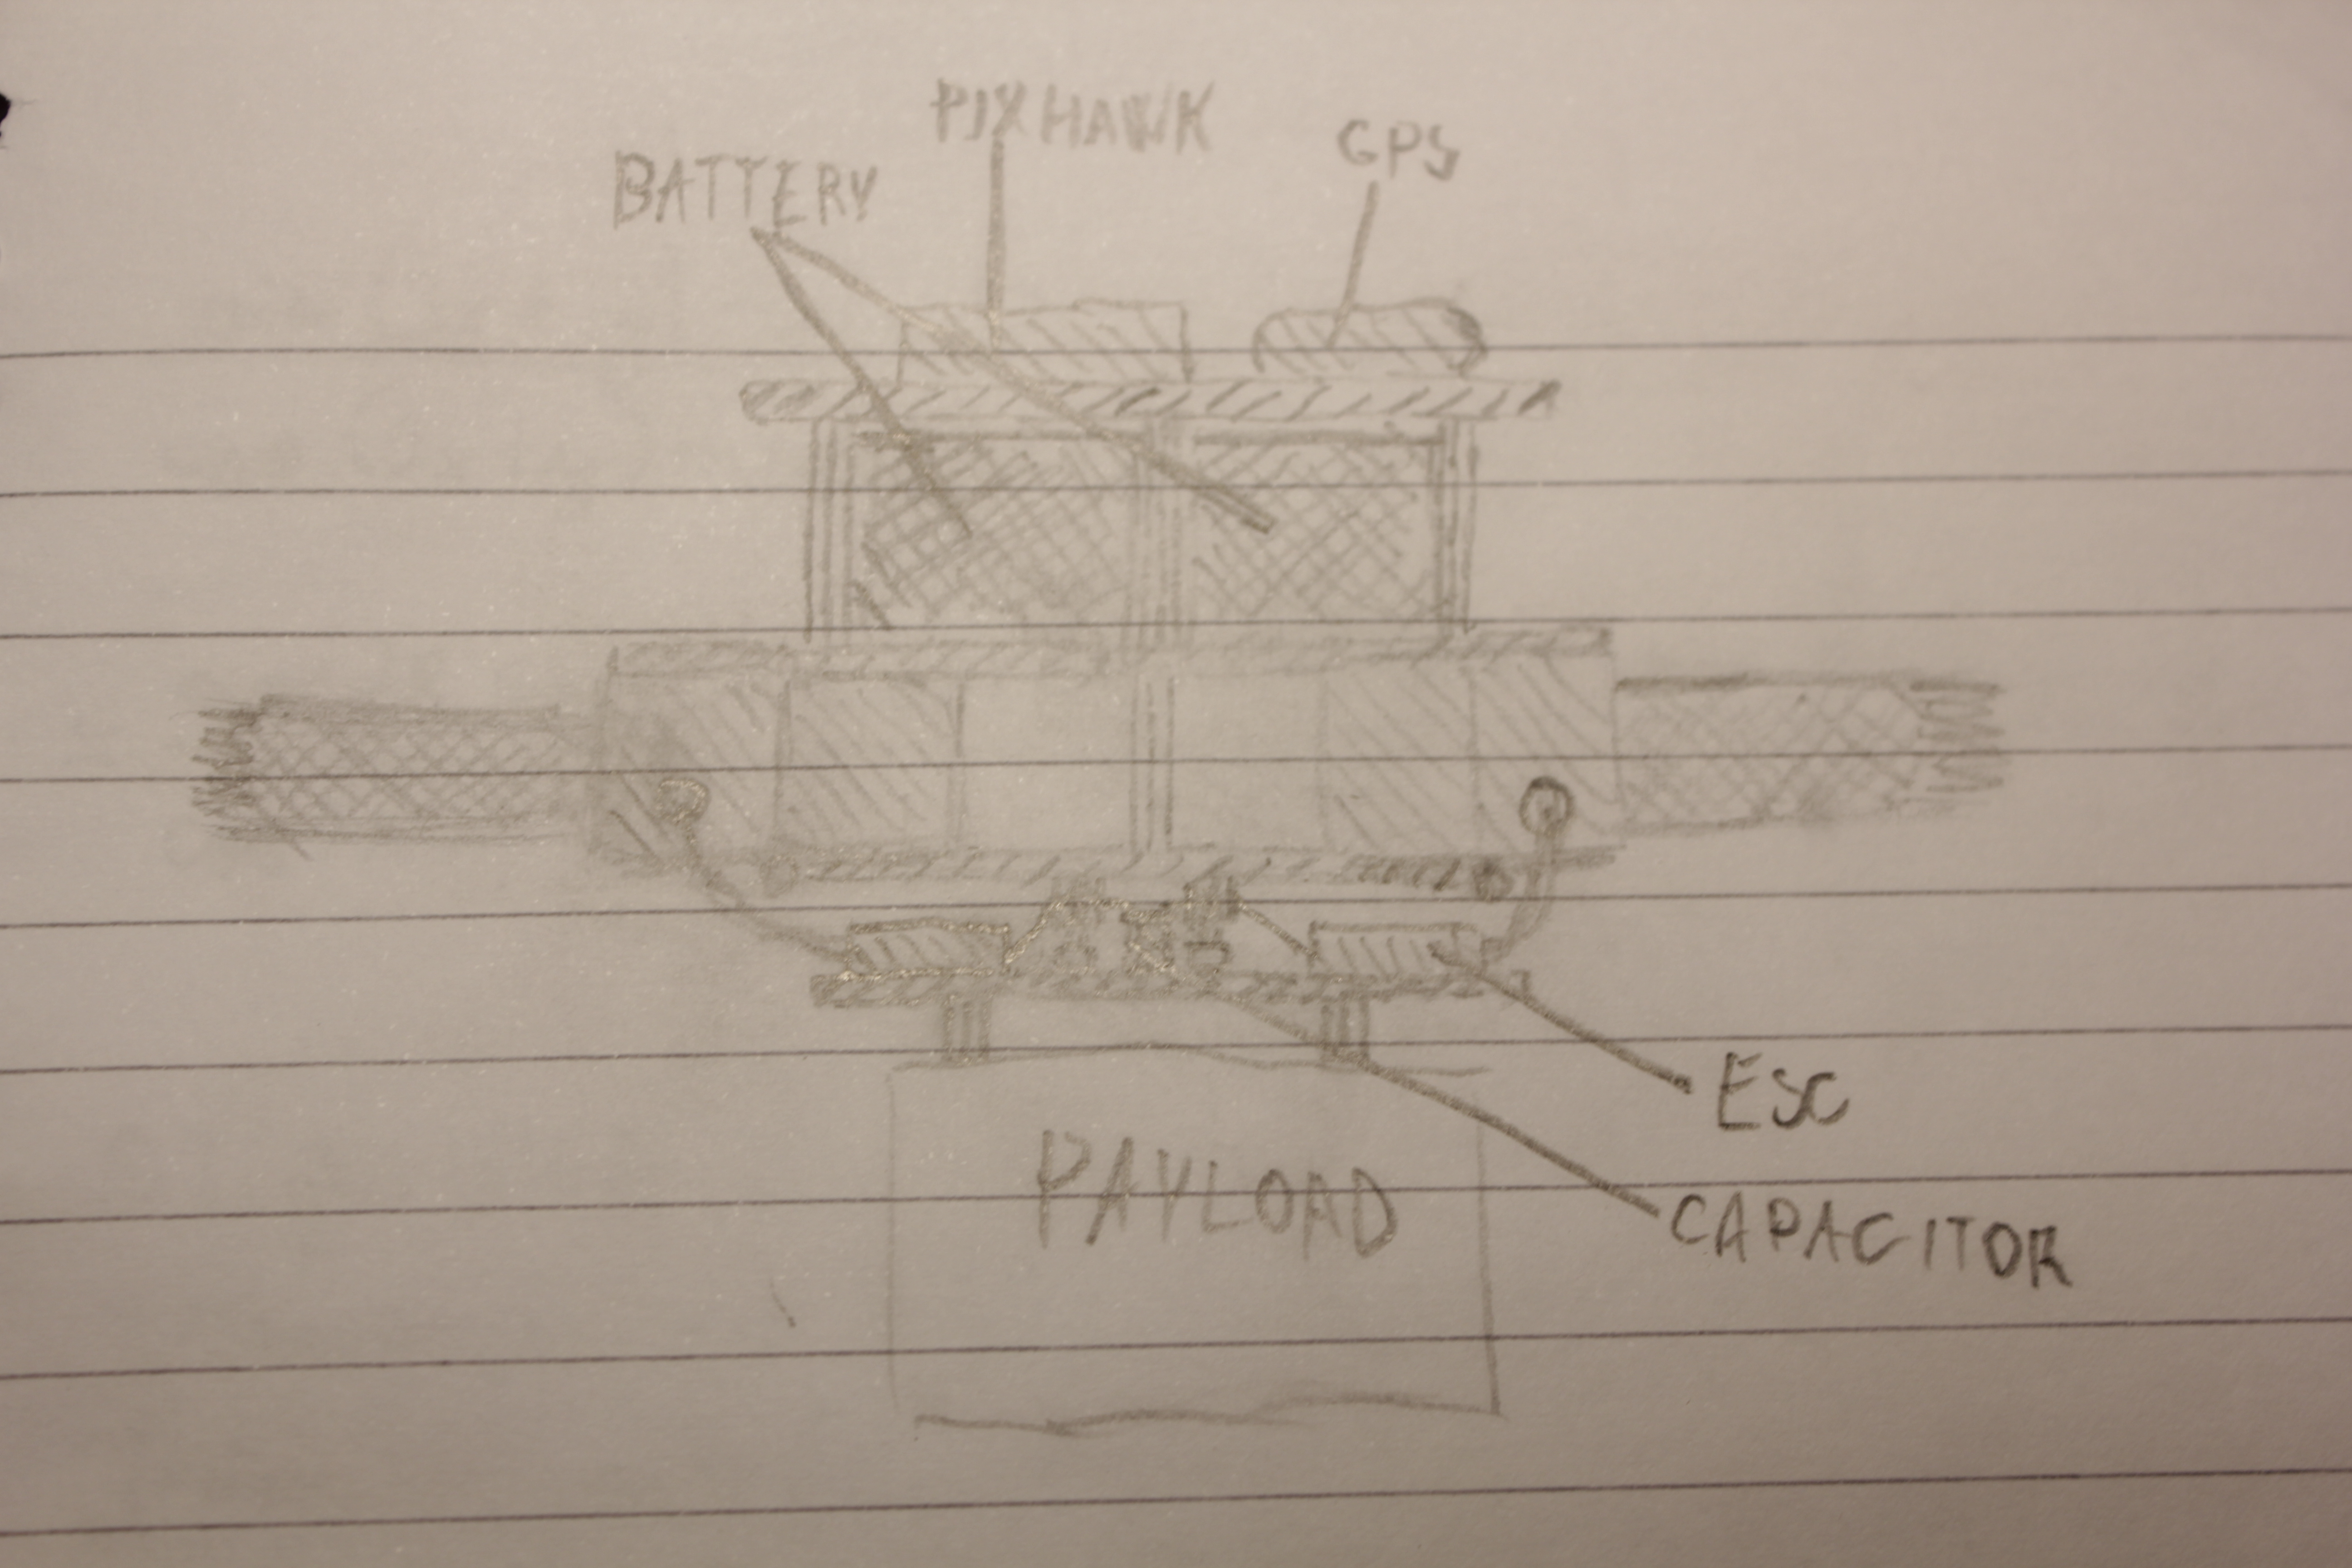 PIXHAWK
GPS
BATTERY
ESC
PAYLOAD
CAPACITOR